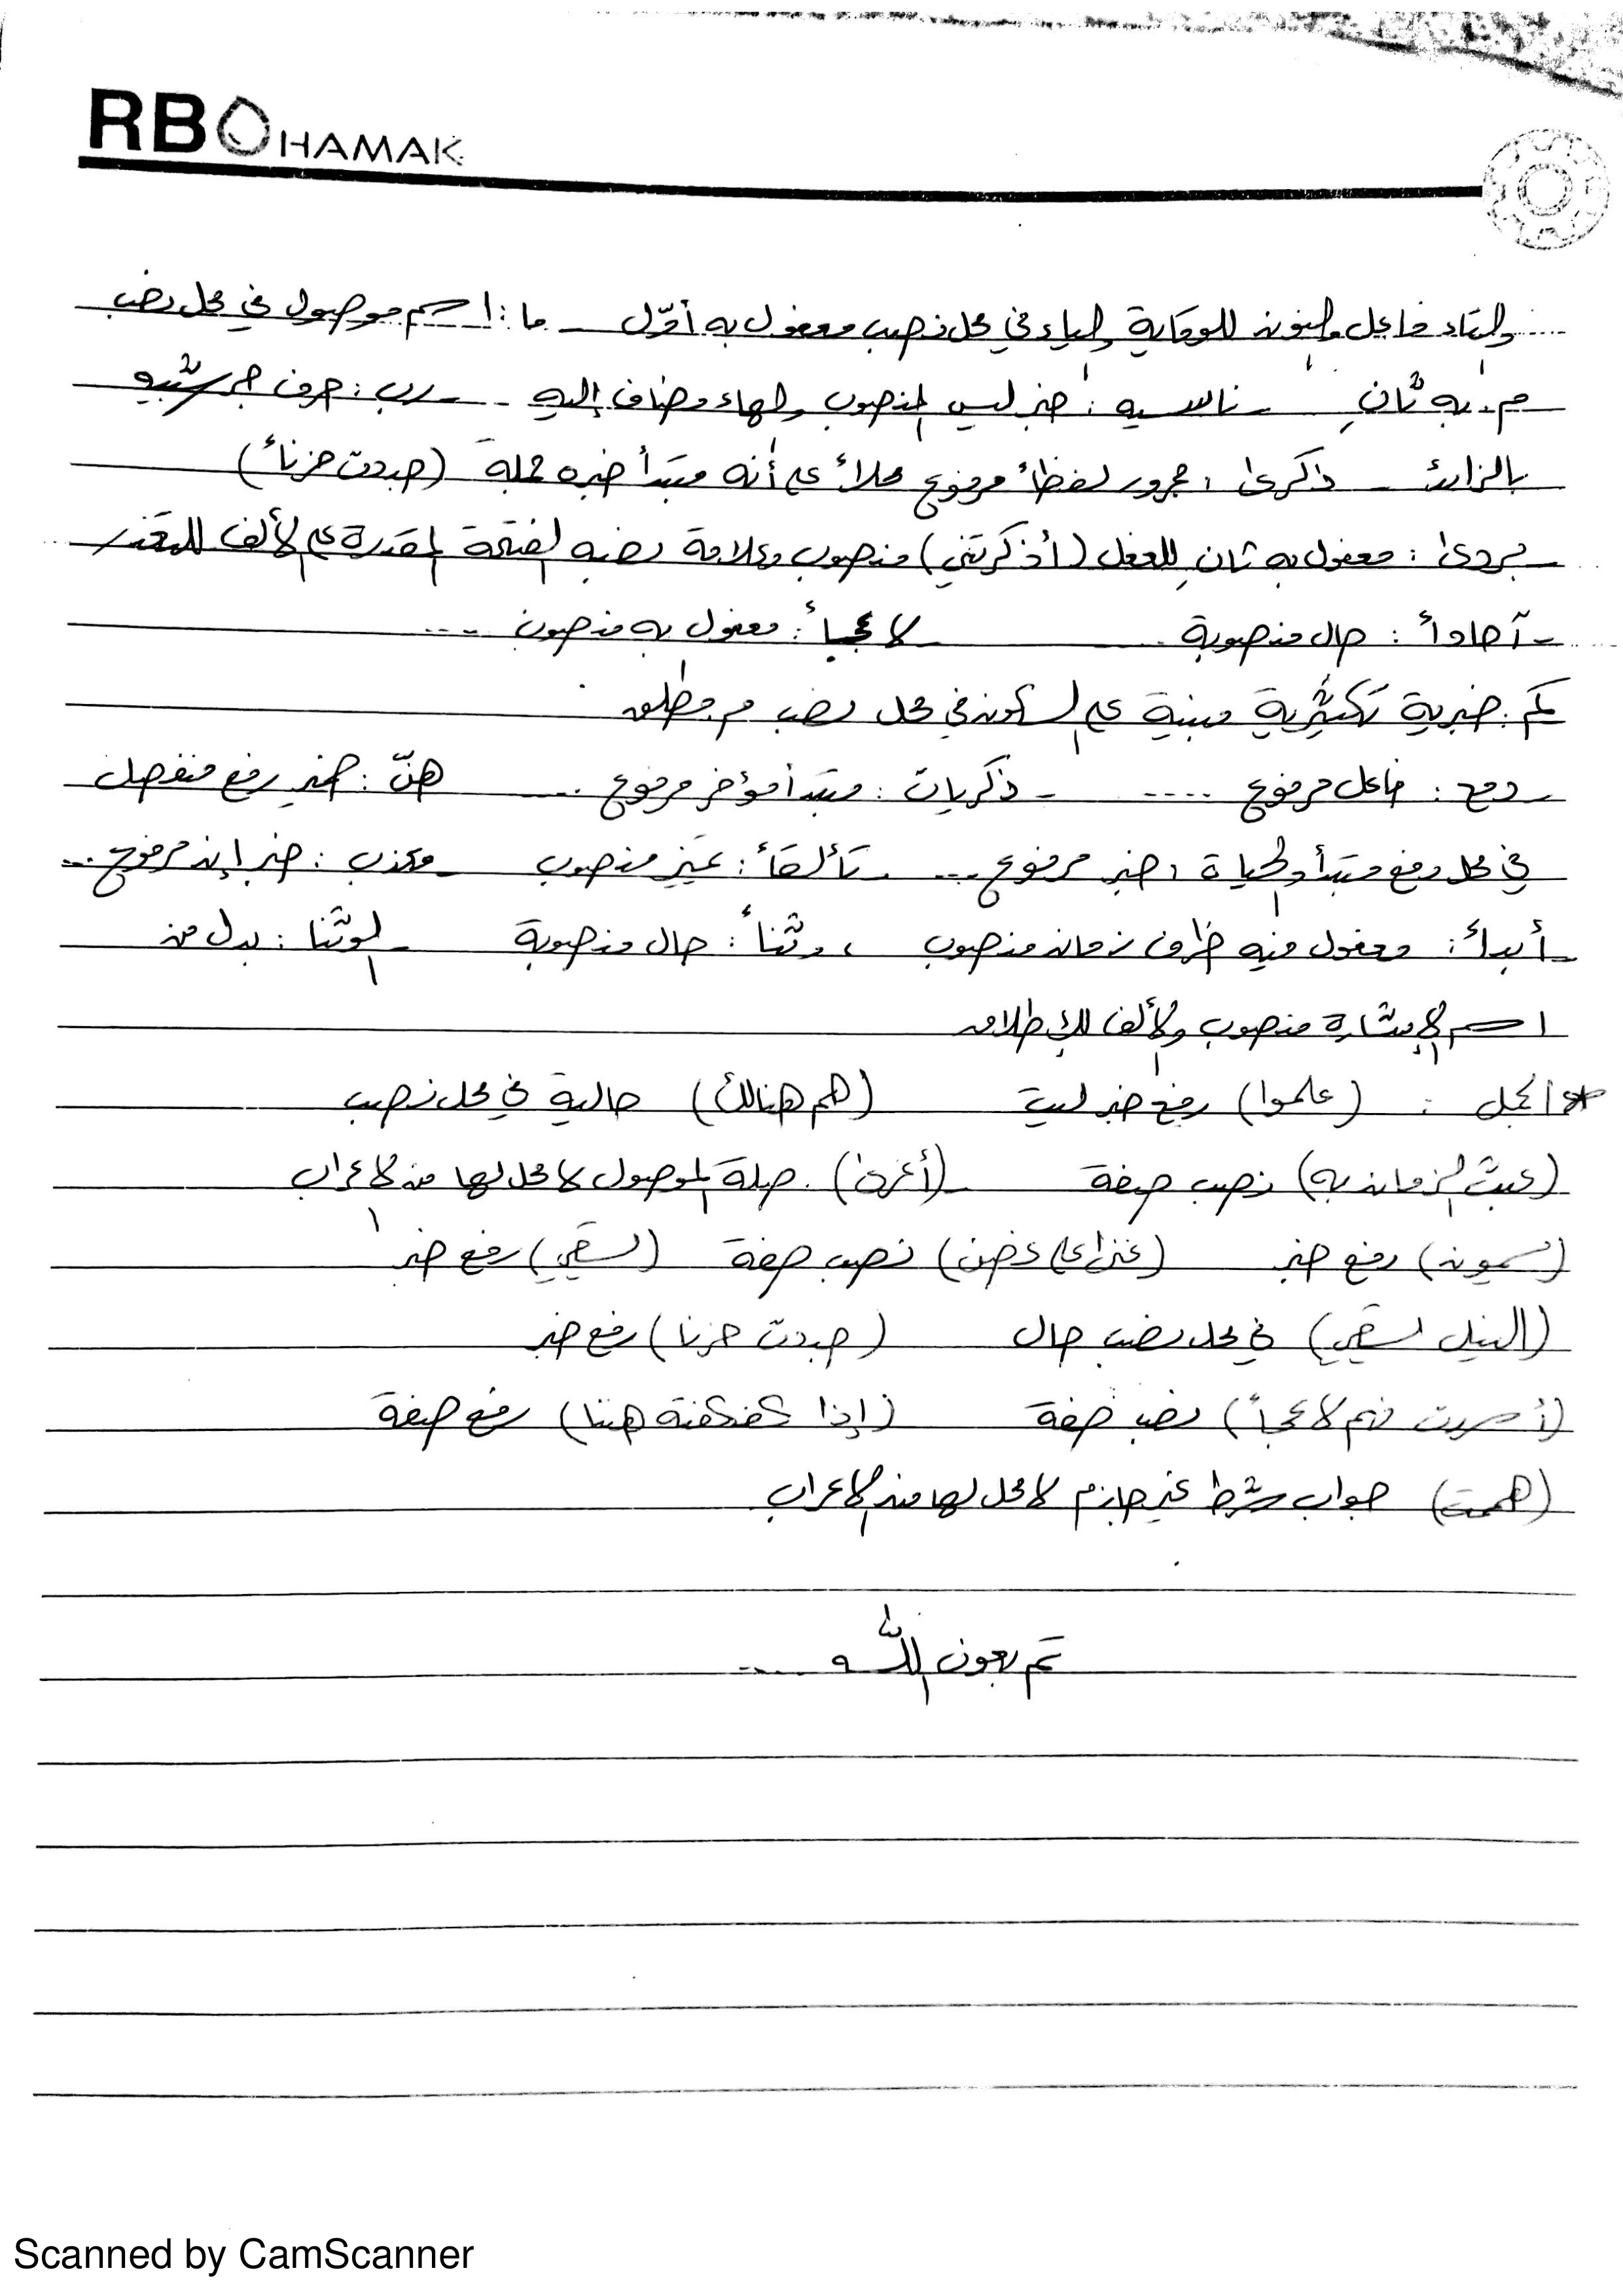 RBOHAMAK
والتاء فاعل والنون للوقاية والياء في محل نصب مفعول به أوّل - ما : اسم موصول في محل نصب
م. به ثانٍ - ناسيه : خبر ليس المنصوب والهاء مضاف إليه - رب : حرف جر شبيه
بالزائد - ذكرى : مجرور لفظاً مرفوع محلاً على أنه مبتدأ خبره جملة (صيدت حزناً)
بردى : مفعول به ثانٍ للفعل (أذكرتني) منصوب وعلامة نصبه الفتحة المقدرة على الألف للتعذر
- آحاداً : حال منصوبة - لاعجاً : مفعول به منصوب ...
كم : خبرية تكثيرية مبنية على السكون في محل نصب م. مطلق
- دمع : فاعل مرفوع .... - ذكريات : مبتدأ مؤخر مرفوع ... هنّ : ضمير رفع منفصل
في محل رفع مبتدأ والحياة : خبر مرفوع ... - تألقاً : تمييز منصوب - معذب : خبر إن مرفوع ...
- أبداً : مفعول فيه ظرف زمان منصوب ، وثناً : حال منصوبة - الوثنا : بدل من
اسم الإشارة منصوب والألف للإطلاق
* الجمل : (علموا) رفع خبر ليت (هم هنالك) حالية في محل نصب
(عبث الزمان به) نصب صفة - (أغرى) . صلة الموصول لا محل لها من الإعراب
(يسمون) رفع خبر (غنى على غصن) نصب صفة (يسقي) رفع خبر
(النيل يسقي) في محل نصب حال (صيدت حزنا) رفع خبر
لاعجاً) نصب صفة (إذا كفكفته هتنا) رفع صفة
(همت) جواب شرط غير جازم لا محل لها من الإعراب
تم بعون الله ...
Scanned by CamScanner